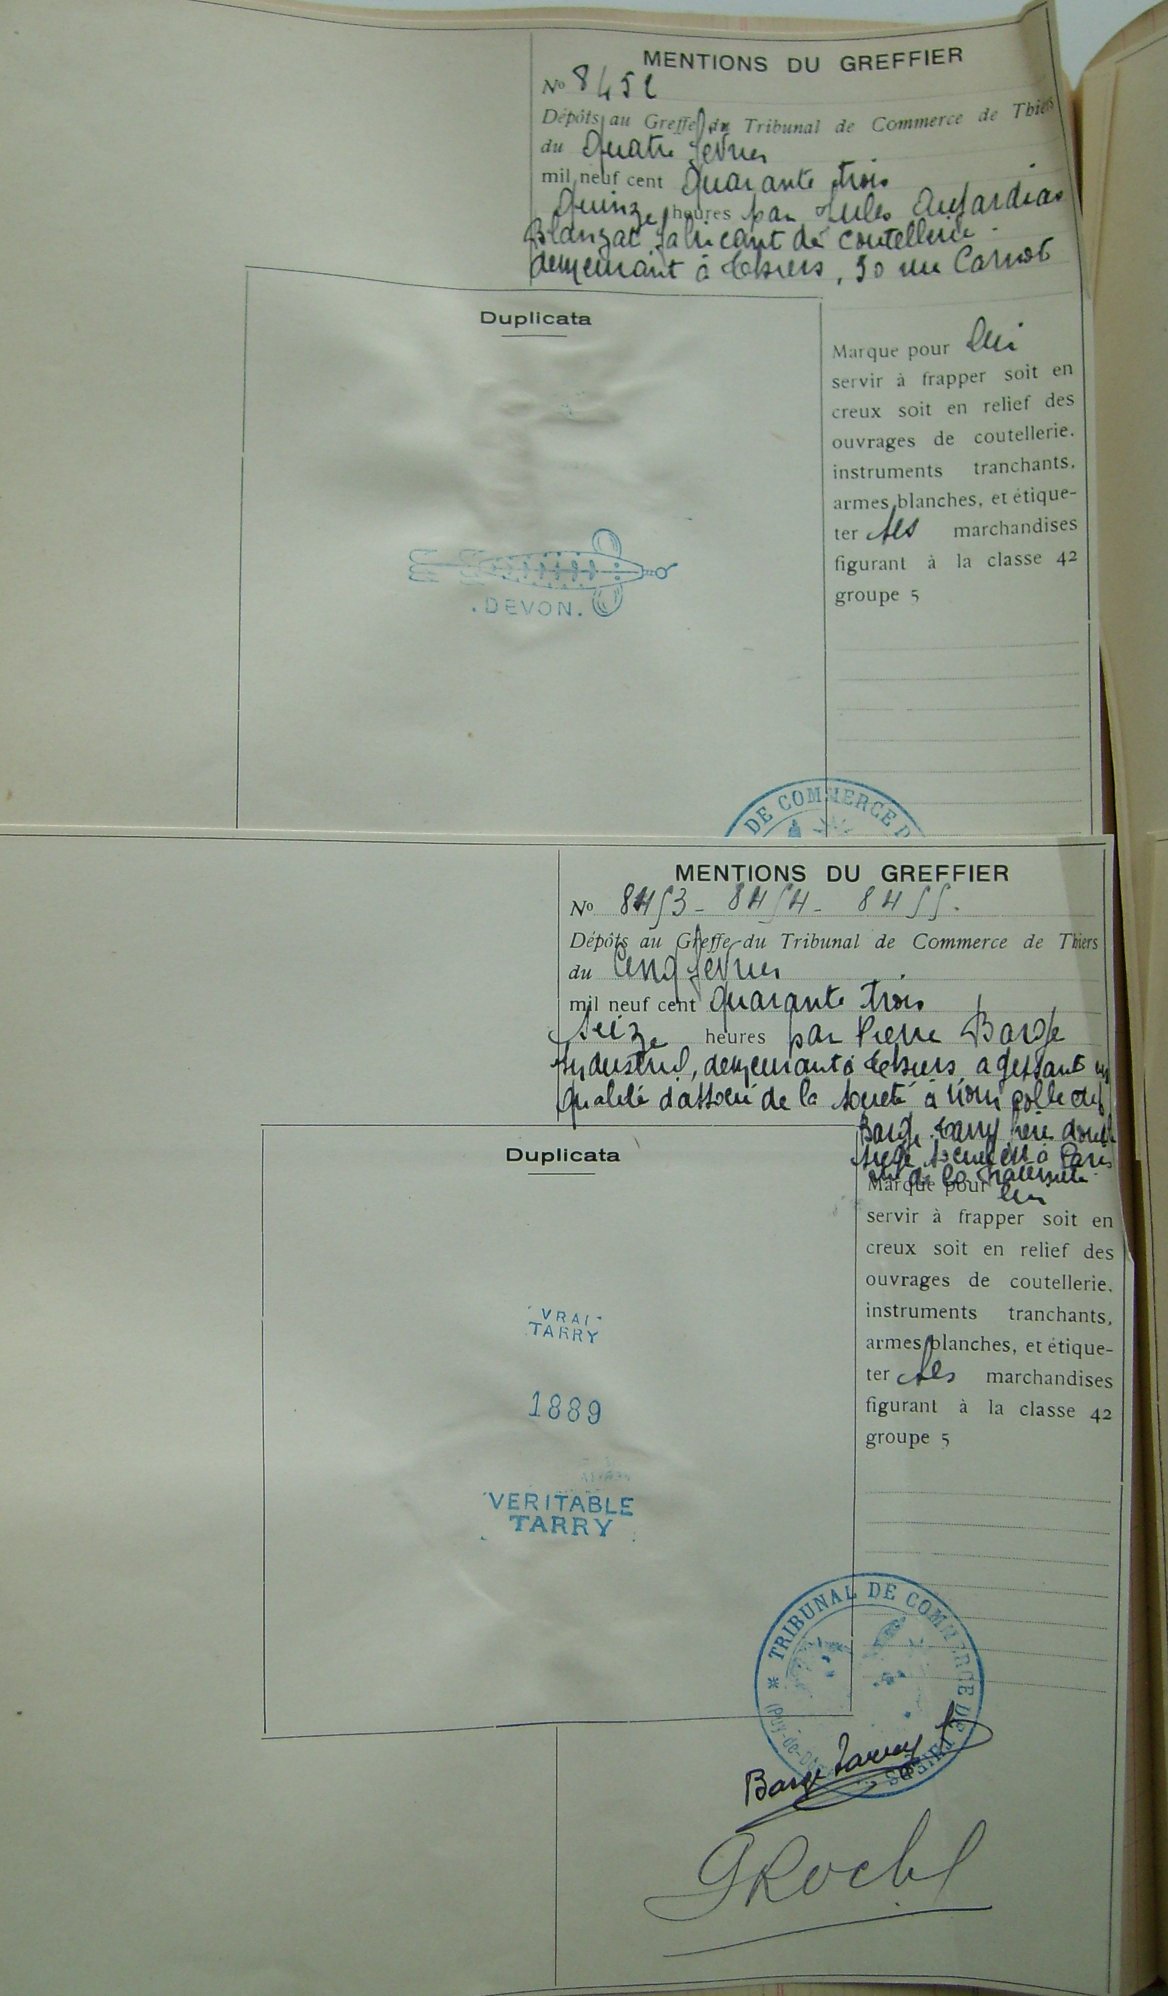 MENTIONS DU GREFFIER
No 8452
Dépôts au Greffe du Tribunal de Commerce de Thiers
du quatre février
mil neuf cent quarante trois
Quinze heures par Jules Dujardias
Blanzat fabricant de coutellerie
demeurant à Thiers, 30 rue Carnot
Duplicata
Marque pour lui
servir à frapper soit en
creux soit en relief des
ouvrages de coutellerie.
instruments tranchants.
armes blanches, et étique-
ter ses marchandises
figurant à la classe 42
groupe 5
.DEVON.
DE COMMERCE D
MENTIONS DU GREFFIER
No 8453 - 8454 - 8455.
Dépôts au Greffe du Tribunal de Commerce de Thiers
du Cinq février
mil neuf cent quarante trois
Seize heures par Pierre Barge
industriel, demeurant à Thiers agissant en
qualité d'associé de la société à nom collectif
Barge Tarry
siège social est à Paris
rue de la
Duplicata
Marque pour lui
servir à frapper soit en
creux soit en relief des
ouvrages de coutellerie.
instruments tranchants,
armes blanches, et étique-
ter ses marchandises
figurant à la classe 42
groupe 5
VRAI
TARRY
1889
VERITABLE
TARRY
* TRIBUNAL DE COMMERCE DE THIERS
(Puy-de-D
Barge Tarry